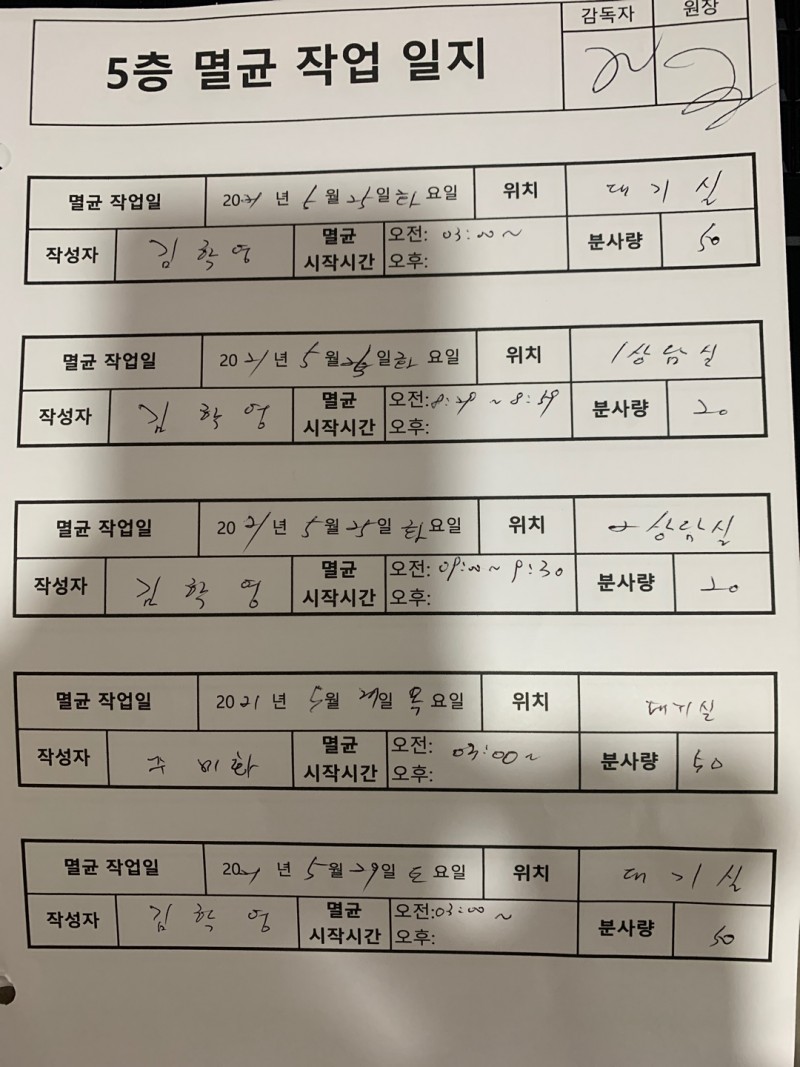 감독자 원장
5층 멸균 작업 일지
멸균 작업일 20 년 월 25일 요요일 위치 대기실
작성자 김학영 멸균 시작시간 오전: 03:00~ 오후: 분사량 50
멸균 작업일 2021년 5월 일 요일 위치 1상담실
작성자 김학영 멸균 시작시간 오전: 8:29 ~ 8:59 오후: 분사량 20
멸균 작업일 2021년 5월 25일 요일 위치 2상담실
작성자 김학영 멸균 시작시간 오전: 09:00 ~ 9:30 오후: 분사량 20
멸균 작업일 2021년 5월 일 목요일 위치 대기실
작성자 멸균 시작시간 오전: 03:00~ 오후: 분사량 50
멸균 작업일 202 년 5월 26일 요일 위치 대기실
작성자 김학영 멸균 시작시간 오전: 03:00 ~ 오후: 분사량 50